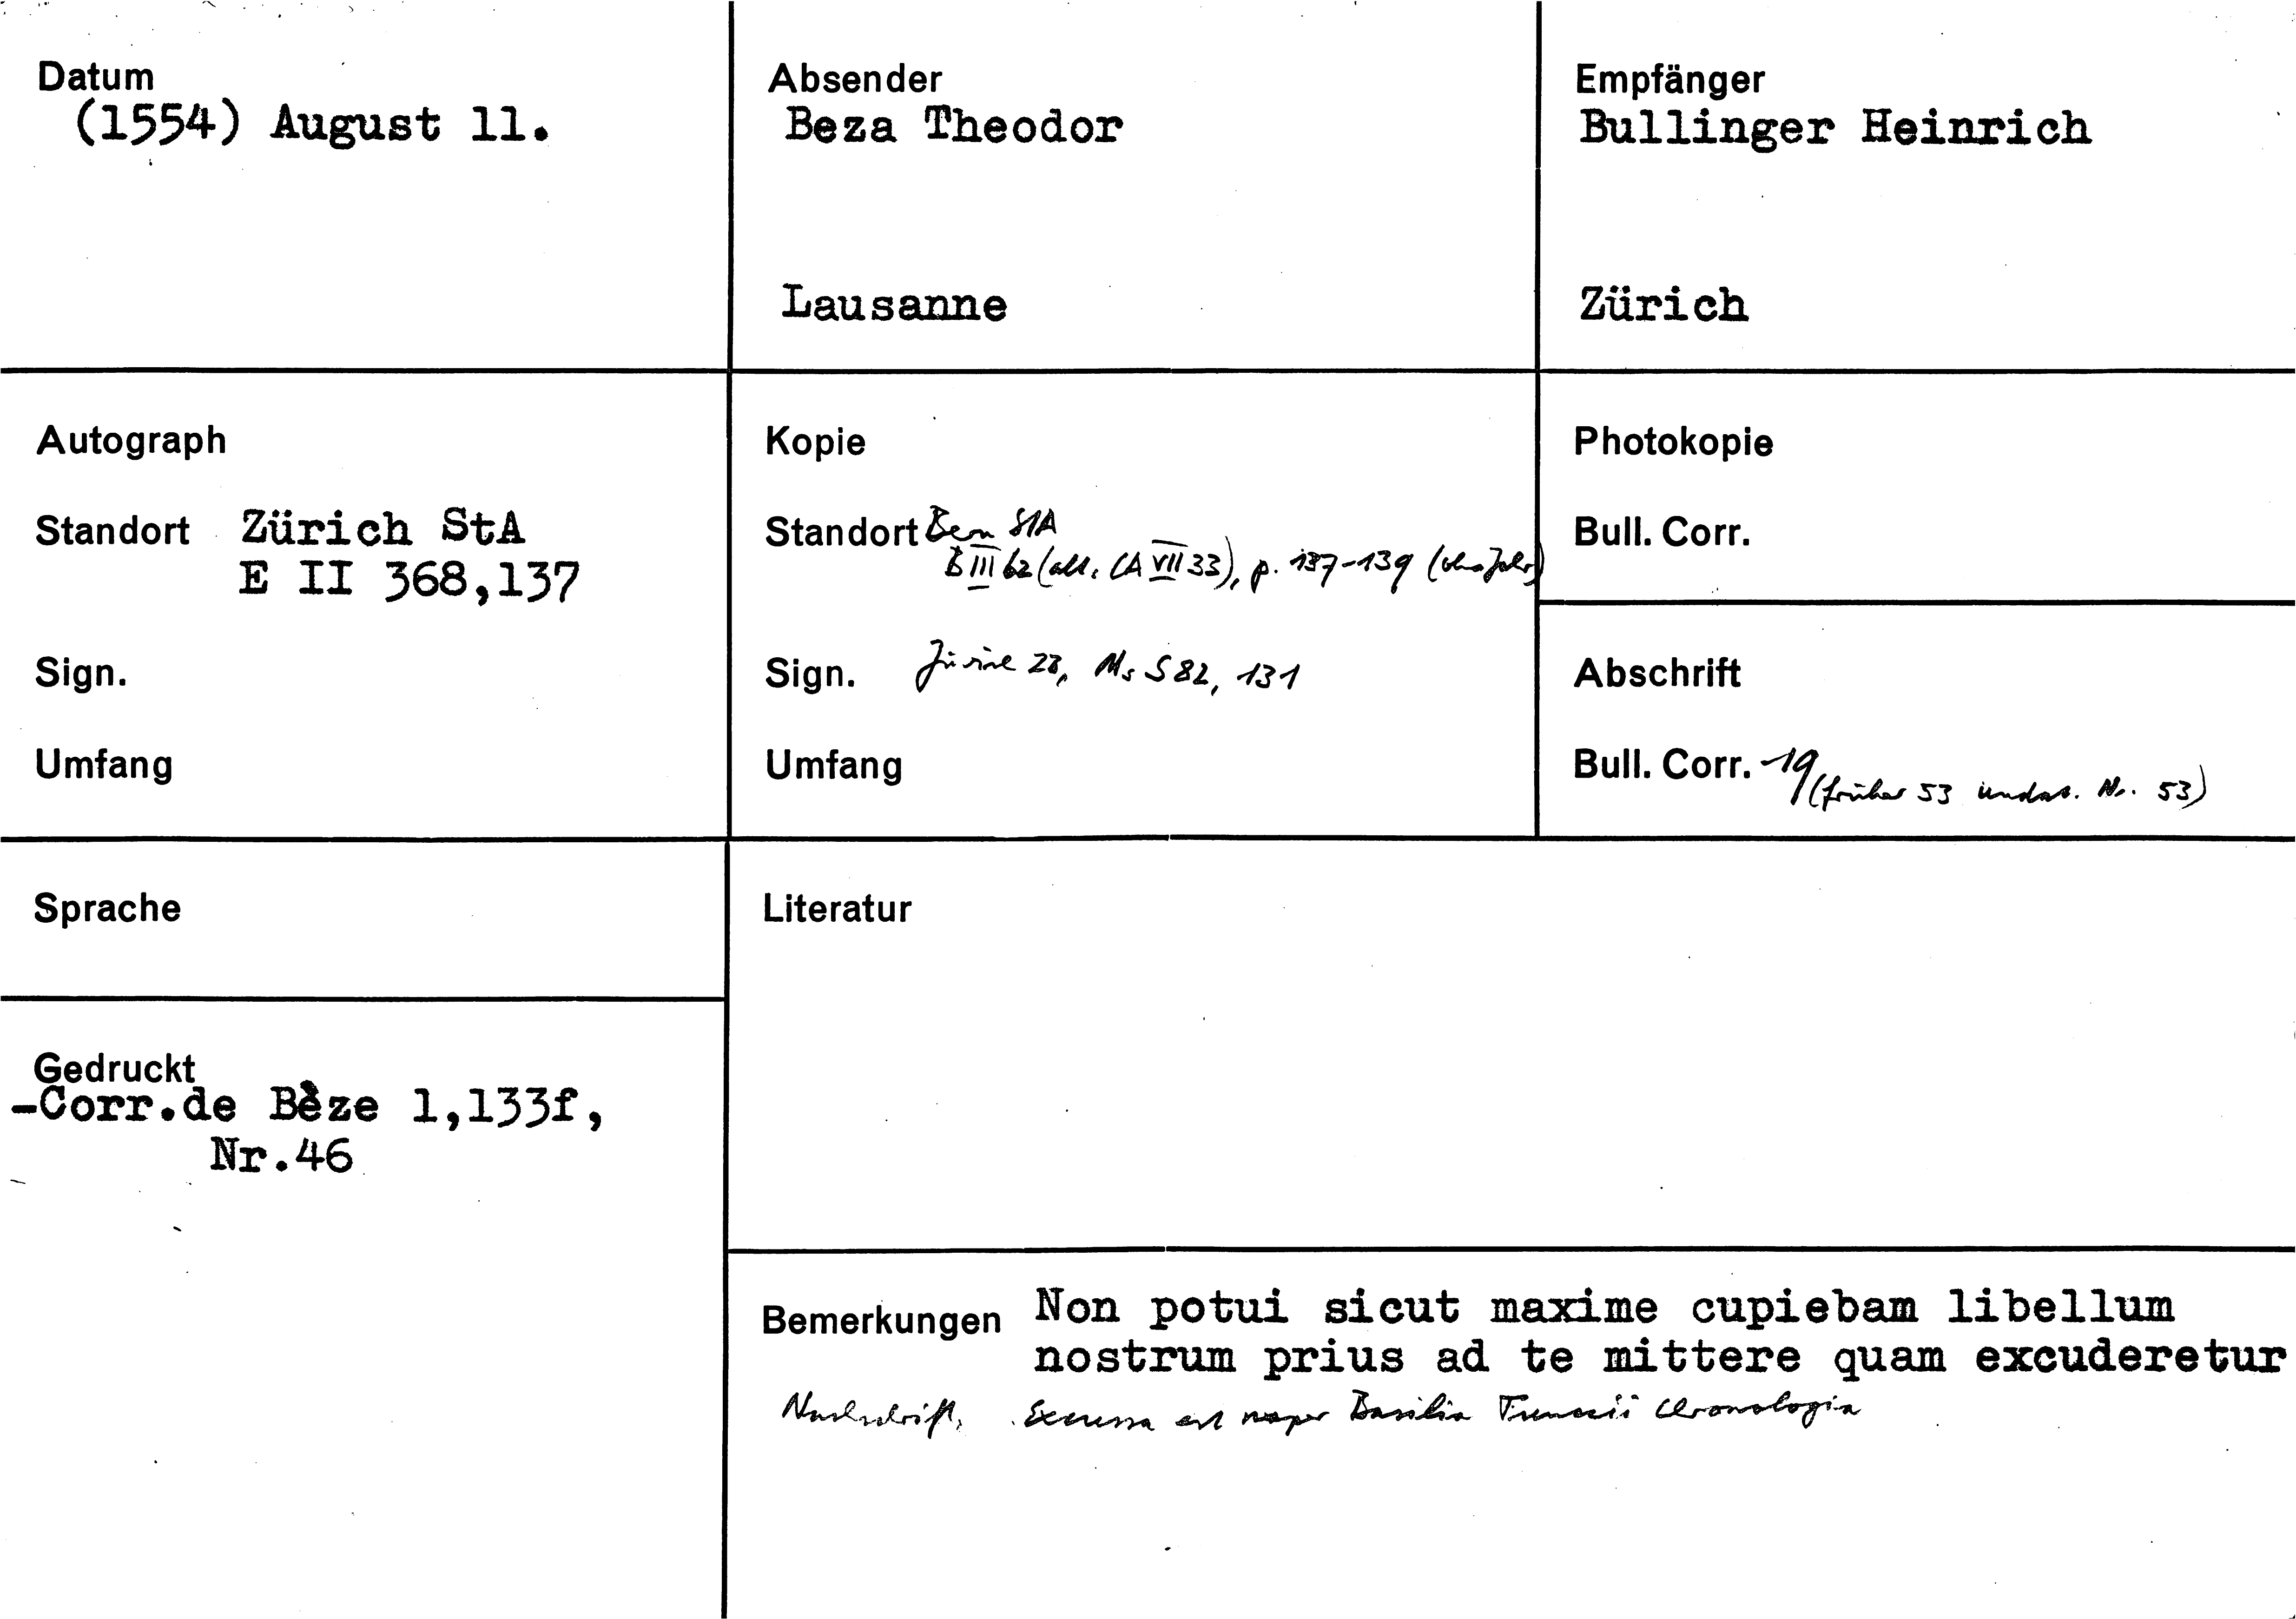 Datum
(1554) August 11.
Absender
Beza Theodor
Lausanne
Empfänger
Bullinger Heinrich
Zürich
Autograph
Standort Zürich StA
E II 368,137
Sign.
Umfang
Kopie
Standort Bern StA
B III 62 (alt. CA VII 33), p. 137-139 (ohne Jahr)
Sign. Zürich ZB, Ms S 82, 131
Umfang
Photokopie
Bull. Corr.
Abschrift
Bull. Corr. 19 (früher 53 undat. Nr. 53)
Sprache
Gedruckt
-Corr.de Bèze 1,133f,
Nr.46
Literatur
Bemerkungen Non potui sicut maxime cupiebam libellum
nostrum prius ad te mittere quam excuderetur
Nachschrift. Excussa est nuper Basilia Chronologia